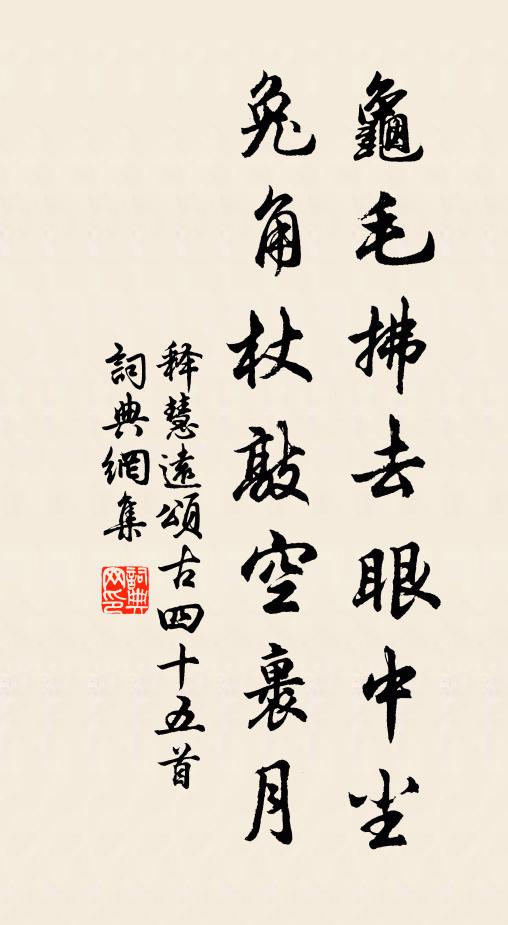 龜毛拂去眼中尘
兔角杖敲空裹月
释慧遠頌古四十五首
詞典網集
詞典網印